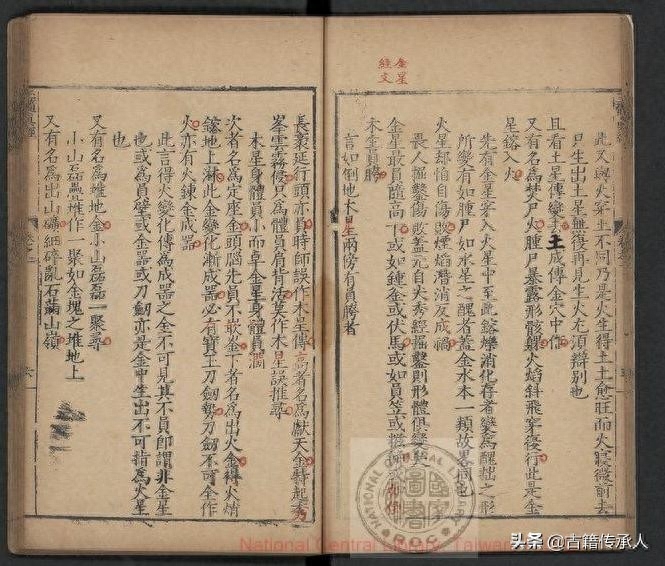 此又與火穿土不同乃是火生得土土愈旺而火寖微前去
只生出土星無復再見生火尤須辯別也
且看土星傳變去土成傳金穴中作
又有名為焚尸火腫尸暴露形骸火焰斜飛穿復行此是金
星鎔入火
先有金星穿入火星中至此鎔爍消化存者變為醜拙之形
所變有如腫尸如水星之醜者蓋金水本一類故畧同也
火星却怕自傷敗煙焰潛消反成禍
畏人摳鑿傷敗蓋元自夫秀經摳鑿則形體俱變矣
金星最員隨高下或如鍾釜或伏馬或如員笠或糍
木金員勝
言如倒地木星兩傍有員勝者
金星
經文
長蒙延行頭亦員時師誤作木星傳高者名為獻天金特起秀
峯雲霧侵只為體員肩肯活莫作木星誤推尋
木星身體員小而卓金星身體員濶
次者名為定座金頭腦先員不敢峇下者名為出火金得火燒
鎔地上淋此金變化漸成器必有寶土刀劔不可全作
火亦有火鍊金成器
此言得火變化傳為成器之金不可見其不員即謂非金星
也或為員碎或金器或刀劔亦是金中生出不可指為火星
也
又有名為堆地金小山磊磊一聚尋
小山磊磊堆作一聚如金塊之堆地上
又有名為出山婦細碎亂石滿山嶺
National Central Library, Taiwan
頭条 @古籍传承人